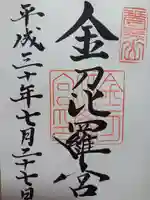 金刀比羅宮
平成三十年七月二十七日